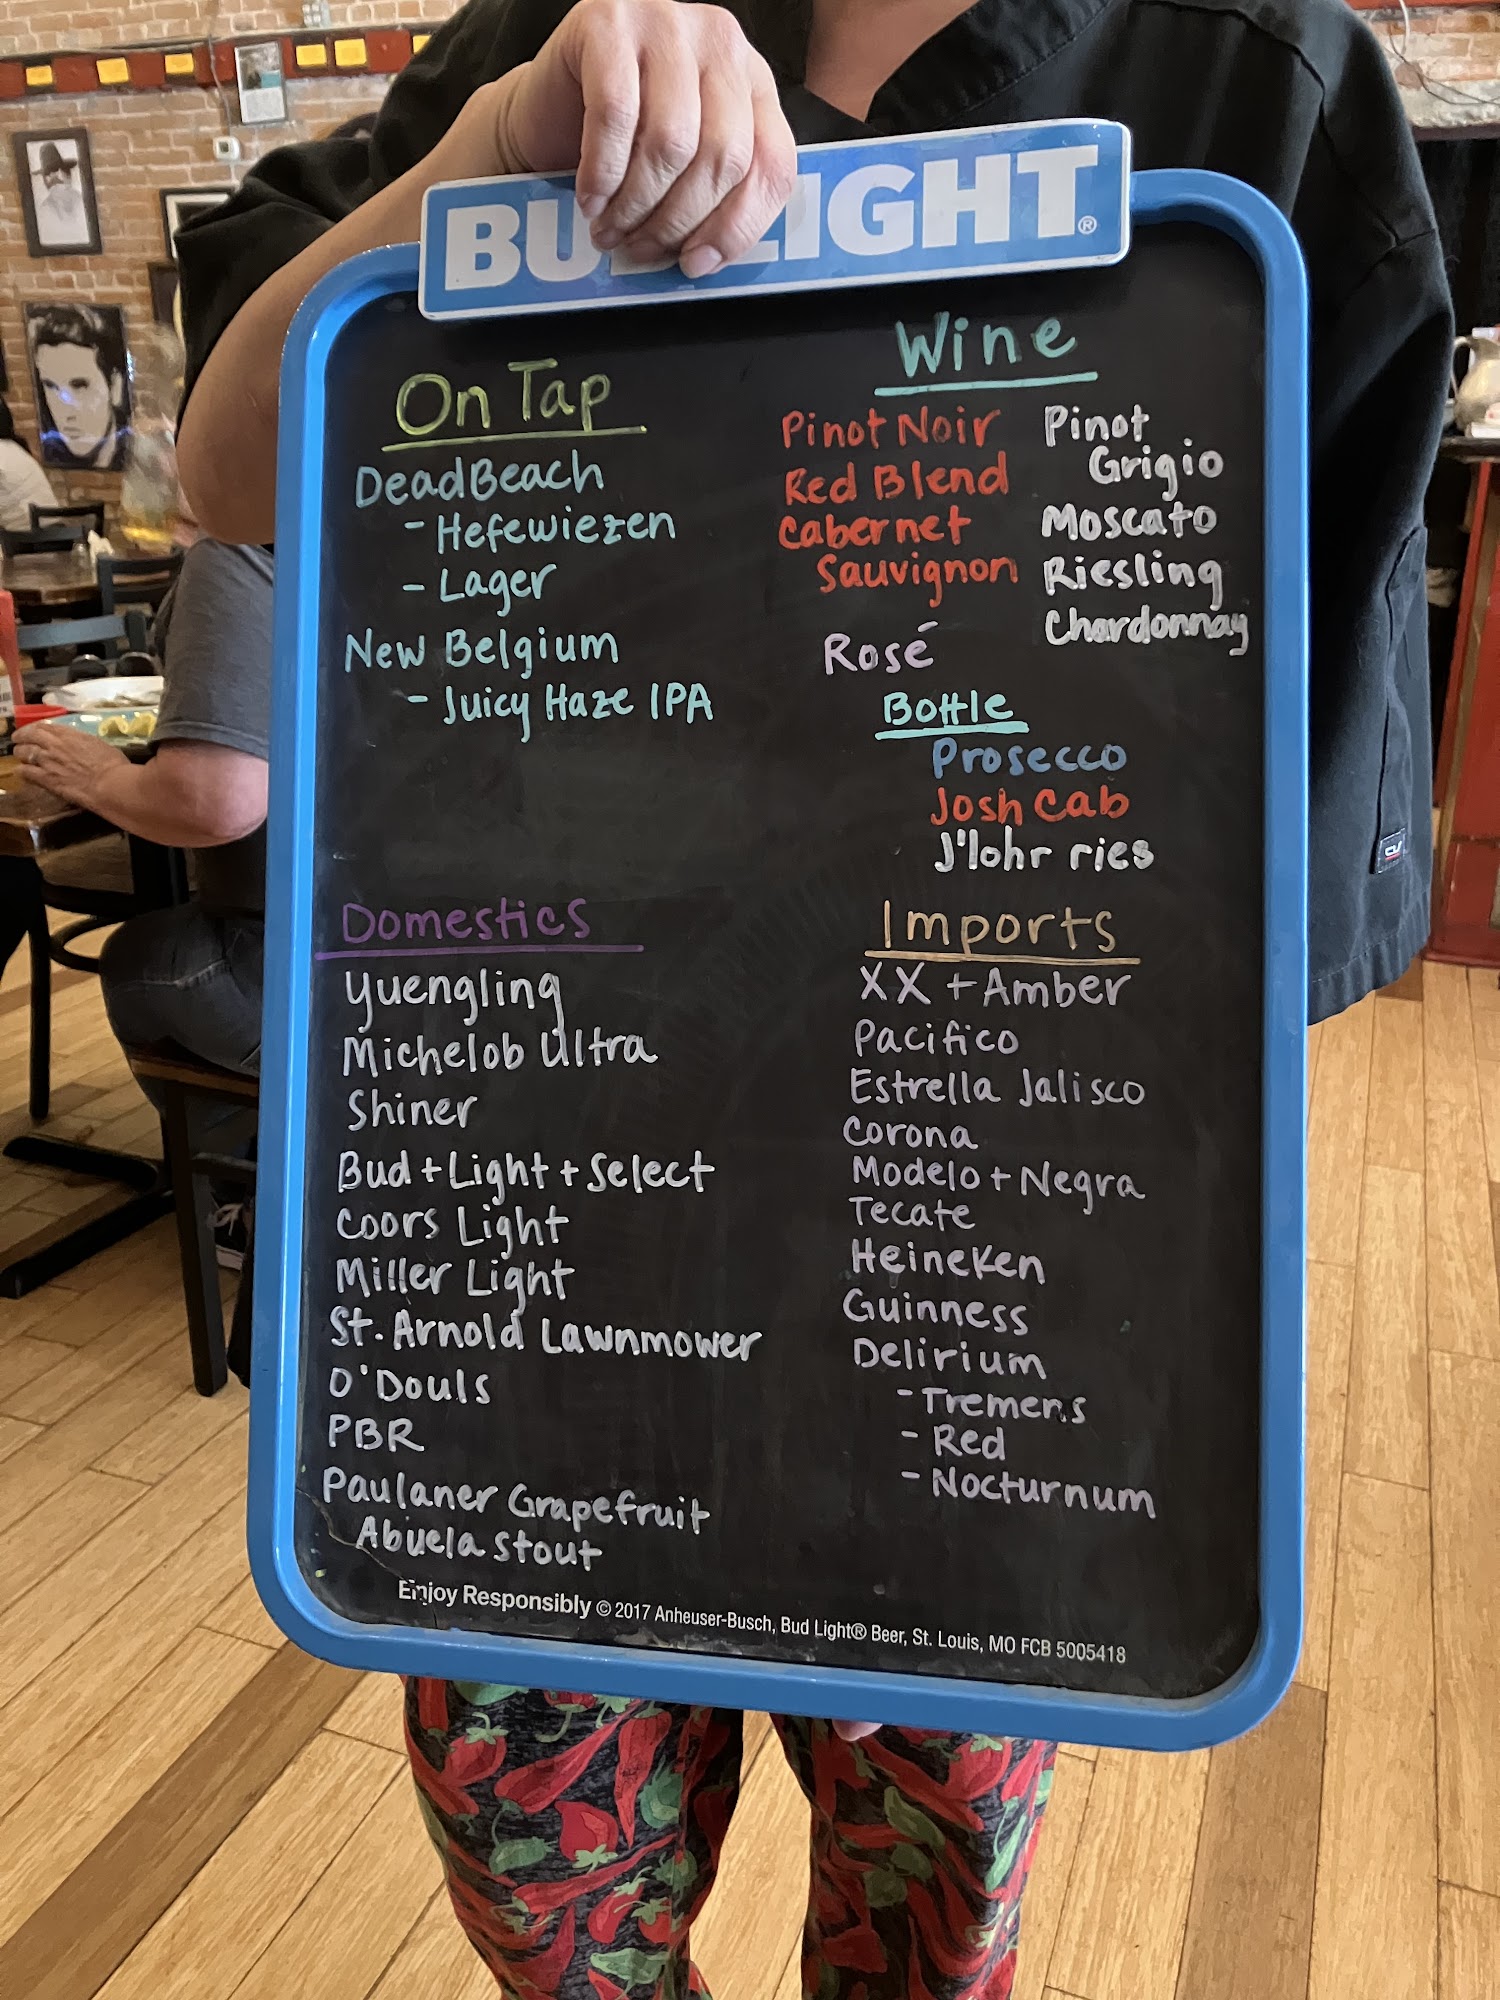 BUD LIGHT®
On Tap
DeadBeach
- Hefewiezen
- Lager
New Belgium
- Juicy Haze IPA
Wine
Pinot Noir
Red Blend
Cabernet
Sauvignon
Rosé
Pinot
Grigio
Moscato
Riesling
Chardonnay
Bottle
Prosecco
Josh Cab
J'lohr ries
Domestics
Yuengling
Michelob Ultra
Shiner
Bud + Light + Select
Coors Light
Miller Light
St. Arnold Lawnmower
O'Douls
PBR
Paulaner Grapefruit
Abuela Stout
Imports
XX + Amber
Pacifico
Estrella Jalisco
Corona
Modelo + Negra
Tecate
Heineken
Guinness
Delirium
- Tremens
- Red
- Nocturnum
Enjoy Responsibly © 2017 Anheuser-Busch, Bud Light® Beer, St. Louis, MO FCB 5005418